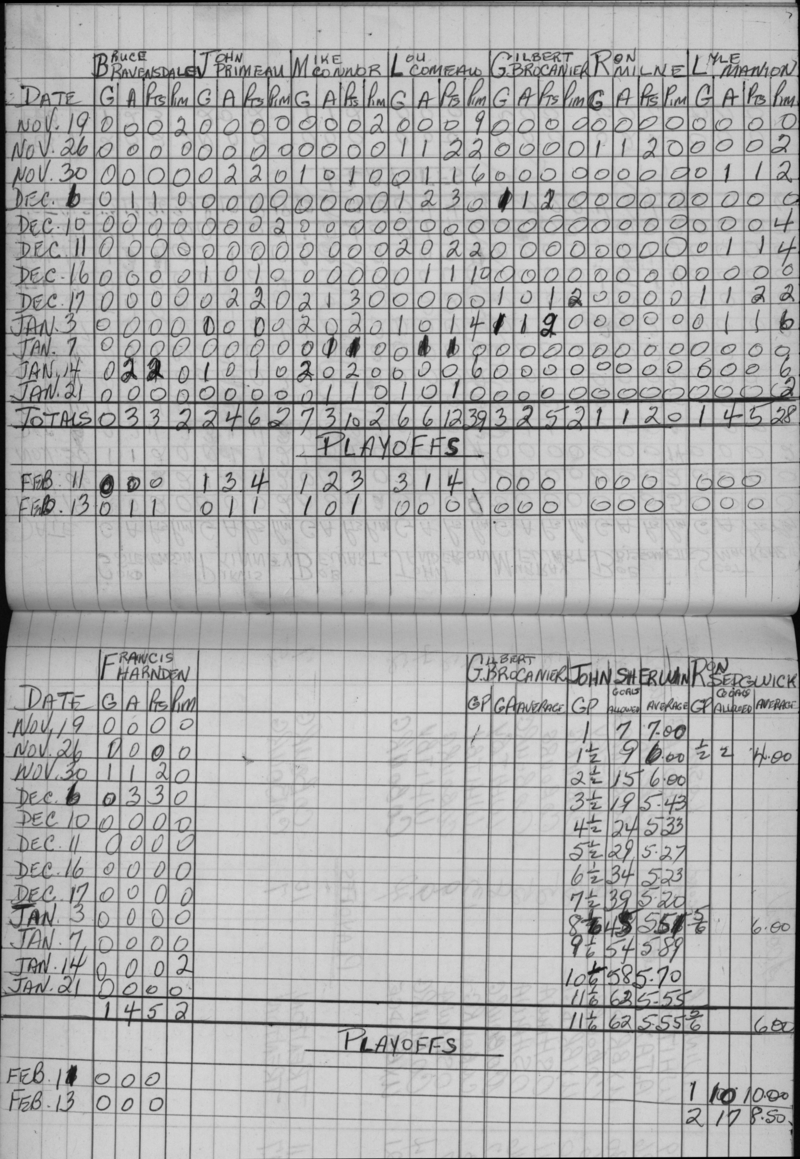 BRUCE RAVENSDALE JOHN PRIMEAU MIKE CONNOR LOU COMEAU GILBERT BROCANIER RON MILNE LYLE MANION
DATE G A Pts Pim G A Pts Pim G A Pts Pim G A Pts Pim G A Pts Pim G A Pts Pim G A Pts Pim
NOV. 19 0 0 0 2 0 0 0 0 0 0 0 2 0 0 0 9 0 0 0 0 0 0 0 0 0 0 0 0
NOV. 26 0 0 0 0 0 0 0 0 0 0 0 0 1 1 2 2 0 0 0 0 1 1 2 0 0 0 0 2
NOV. 30 0 0 0 0 0 2 2 0 1 0 1 0 0 1 1 6 0 0 0 0 0 0 0 0 0 1 1 2
DEC. 6 0 1 1 0 0 0 0 0 0 0 0 0 1 2 3 0 1 1 2 0 0 0 0 0 0 0 0 0
DEC. 10 0 0 0 0 0 0 0 2 0 0 0 0 0 0 0 0 0 0 0 0 0 0 0 0 0 0 0 4
DEC. 11 0 0 0 0 0 0 0 0 0 0 0 0 2 0 2 2 0 0 0 0 0 0 0 0 0 1 1 4
DEC. 16 0 0 0 0 1 0 1 0 0 0 0 0 0 1 1 10 0 0 0 0 0 0 0 0 0 0 0 0
DEC. 17 0 0 0 0 0 2 2 0 2 1 3 0 0 0 0 0 1 0 1 2 0 0 0 0 1 1 2 2
JAN. 3 0 0 0 0 0 0 0 0 2 0 2 0 1 0 1 4 1 1 2 0 0 0 0 0 0 1 1 6
JAN. 7 0 0 0 0 0 0 0 0 0 1 1 0 0 1 1 0 0 0 0 0 0 0 0 0 0 0 0 0
JAN. 14 0 2 2 0 1 0 1 0 2 0 2 0 0 0 0 6 0 0 0 0 0 0 0 0 0 0 0 6
JAN. 21 0 0 0 0 0 0 0 0 0 1 1 0 1 0 1 0 0 0 0 0 0 0 0 0 0 0 0 2
TOTALS 0 3 3 2 2 4 6 2 7 3 10 2 6 6 12 39 3 2 5 2 1 1 2 0 1 4 5 28
PLAYOFFS
FEB. 11 0 0 0 1 3 4 1 2 3 3 1 4 0 0 0 0 0 0 0 0 0
FEB. 13 0 1 1 0 1 1 1 0 1 0 0 0 0 0 0 0 0 0 0 0 0
FRANCIS HARNDEN GILBERT BROCANIER JOHN SHERWIN RON SEDGWICK
DATE G A Pts Pim GP GA AVERAGE GP GOALS ALLOWED AVERAGE GP GOALS ALLOWED AVERAGE
NOV. 19 0 0 0 0 1 7 7.00
NOV. 26 0 0 0 0 1½ 9 6.00 ½ 2 4.00
NOV. 30 1 1 2 0 2½ 15 6.00
DEC. 6 0 3 3 0 3½ 19 5.43
DEC. 10 0 0 0 0 4½ 24 5.33
DEC. 11 0 0 0 0 5½ 29 5.27
DEC. 16 0 0 0 0 6½ 34 5.23
DEC. 17 0 0 0 0 7½ 39 5.20
JAN. 3 0 0 0 0 8⅙ 45 5.51 ⅚ 6.00
JAN. 7 0 0 0 0 9⅙ 54 5.89
JAN. 14 0 0 0 2 10⅙ 58 5.70
JAN. 21 0 0 0 0 11⅙ 62 5.55
1 4 5 2 11⅙ 62 5.55 ⅚ 6.00
PLAYOFFS
FEB. 11 0 0 0 1 10 10.00
FEB. 13 0 0 0 2 17 8.50